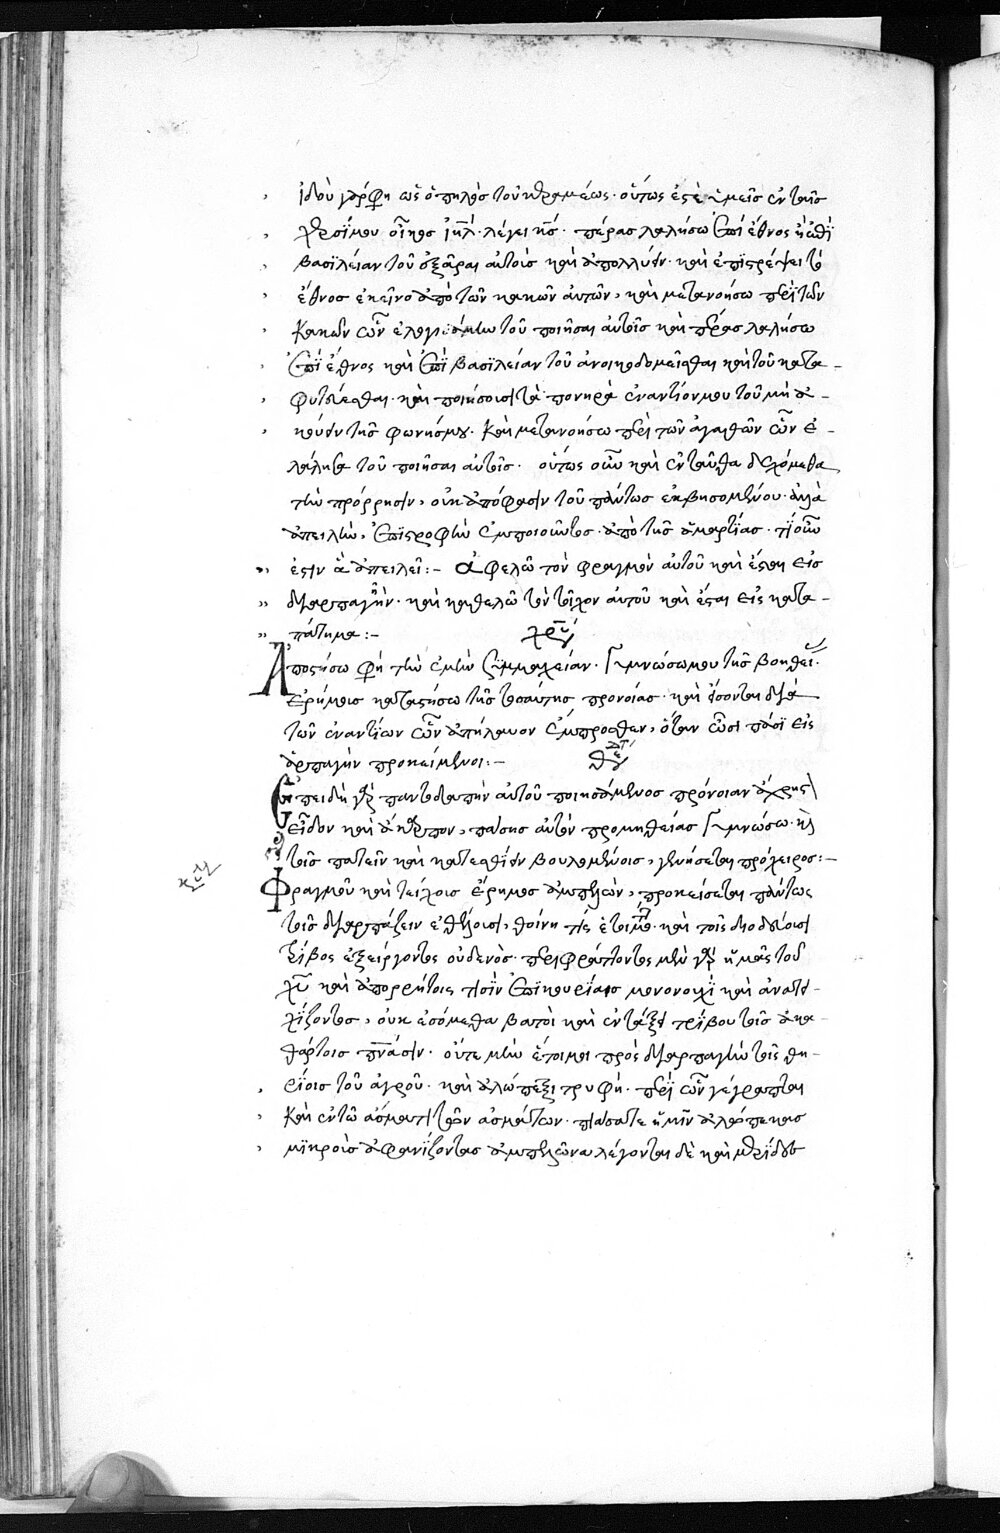 ἰδοὺ γάρ φη ὡς ὁ πηλὸς τοῦ κεραμέως· οὕτως ἐστὲ ὑμεῖς ἐν ταῖς
χερσί μου οἶκος ἰηλ̅· λέγει κς̅· πέρας λαλήσω ἐπὶ ἔθνος ἢ ἐπὶ
βασιλείαν τοῦ ἐξᾶραι αὐτοὺς καὶ ἀπολλύειν· καὶ ἐπιστρέψει τὸ
ἔθνος ἐκεῖνο ἀπὸ τῶν κακῶν αὐτῶν, καὶ μετανοήσω περὶ τῶν
κακῶν ὧν ἐλογισάμην τοῦ ποιῆσαι αὐτοῖς καὶ πέρας λαλήσω
ἐπὶ ἔθνος καὶ ἐπὶ βασιλείαν τοῦ ἀνοικοδομεῖσθαι καὶ τοῦ κατα-
φυτεύεσθαι· καὶ ποιήσουσι τὰ πονηρὰ ἐναντίον μου τοῦ μὴ ἀ-
κούειν τῆς φωνῆς μου. καὶ μετανοήσω περὶ τῶν ἀγαθῶν ὧν ἐ-
λάλησα τοῦ ποιῆσαι αὐτοῖς. οὕτως οὖν καὶ ἐνταῦθα δεχόμεθα
τὴν πρόρρησιν, οὐκ ἀπόφασιν τοῦ πάντως ἐκβησομένου· ἀλλὰ
ἀπειλὴν, ἐπιστροφὴν ἐμποιοῦντος· ἀπὸ τῆς ἁμαρτίας· τί οὖν
ἐστιν ἃ ἀπειλεῖ:- ἀφελῶ τὸν φραγμὸν αὐτοῦ καὶ ἔσται εἰς
διαρπαγήν· καὶ καθελῶ τὸν τοῖχον αὐτοῦ καὶ ἔσται εἰς κατα-
πάτημα:-
χρυ
Ἀποστήσω φη τὴν ἐμὴν συμμαχείαν. γυμνώσω μου τῆς βοηθεί.
ἐρήμους καταστήσω τῆς τοσαύτης προνοίας· καὶ ἔσονται διὰ
τῶν ἐναντίων ὧν ἀπήλαυον ἔμπροσθεν, ὅταν ὦσι πᾶσι εἰς
ἁρπαγὴν προκείμενοι:-
Ἐπειδὴ γὰρ παντοδαπὴν αὐτοῦ ποιησάμενος πρόνοιαν ἄχρηστ
εἶδον καὶ ἄκαρπον, πάσης αὐτὸν προμηθείας γυμνώσω· κὶ
τοῖς πατεῖν καὶ κατεσθίειν βουλομένοις, γενήσεται πρόχειρος:-
κυλ
Φραγμοῦ καὶ τείχους ἔρημος ἀμπελὼν, προκείσεται πάντως
τοῖς διαρπάζειν ἐθέλουσι, θοίνη τίς ἑτοίμη· καὶ τοῖς διοδεύουσι
τρίβος ἐξείργοντος οὐδενὸς· περιφράττοντος μὲν γὰρ ἡμᾶς τοῦ
χυ̅ καὶ ἀπορρήτοις τισὶν ἐπικουρίαις μονονουχὶ καὶ ἀνατει-
χίζοντος, οὐκ ἐσόμεθα βατοὶ καὶ ἐν τάξει τρίβου τοῖς ἀκα-
θάρτοις πνάσιν· οὔτε μὴν ἕτοιμοι πρὸς διαρπαγὴν τοῖς θη-
ρίοις τοῦ ἀγροῦ· καὶ ἀλώπεξι τρυφή· περὶ ὧν γέγραπται
καὶ ἐν τῷ ἄσματι τῶν ἀσμάτων· πιάσατε ἡμῖν ἀλώπεκας
μικροὺς ἀφανίζοντας ἀμπελῶνα λέγονται δὲ καὶ μερίδες